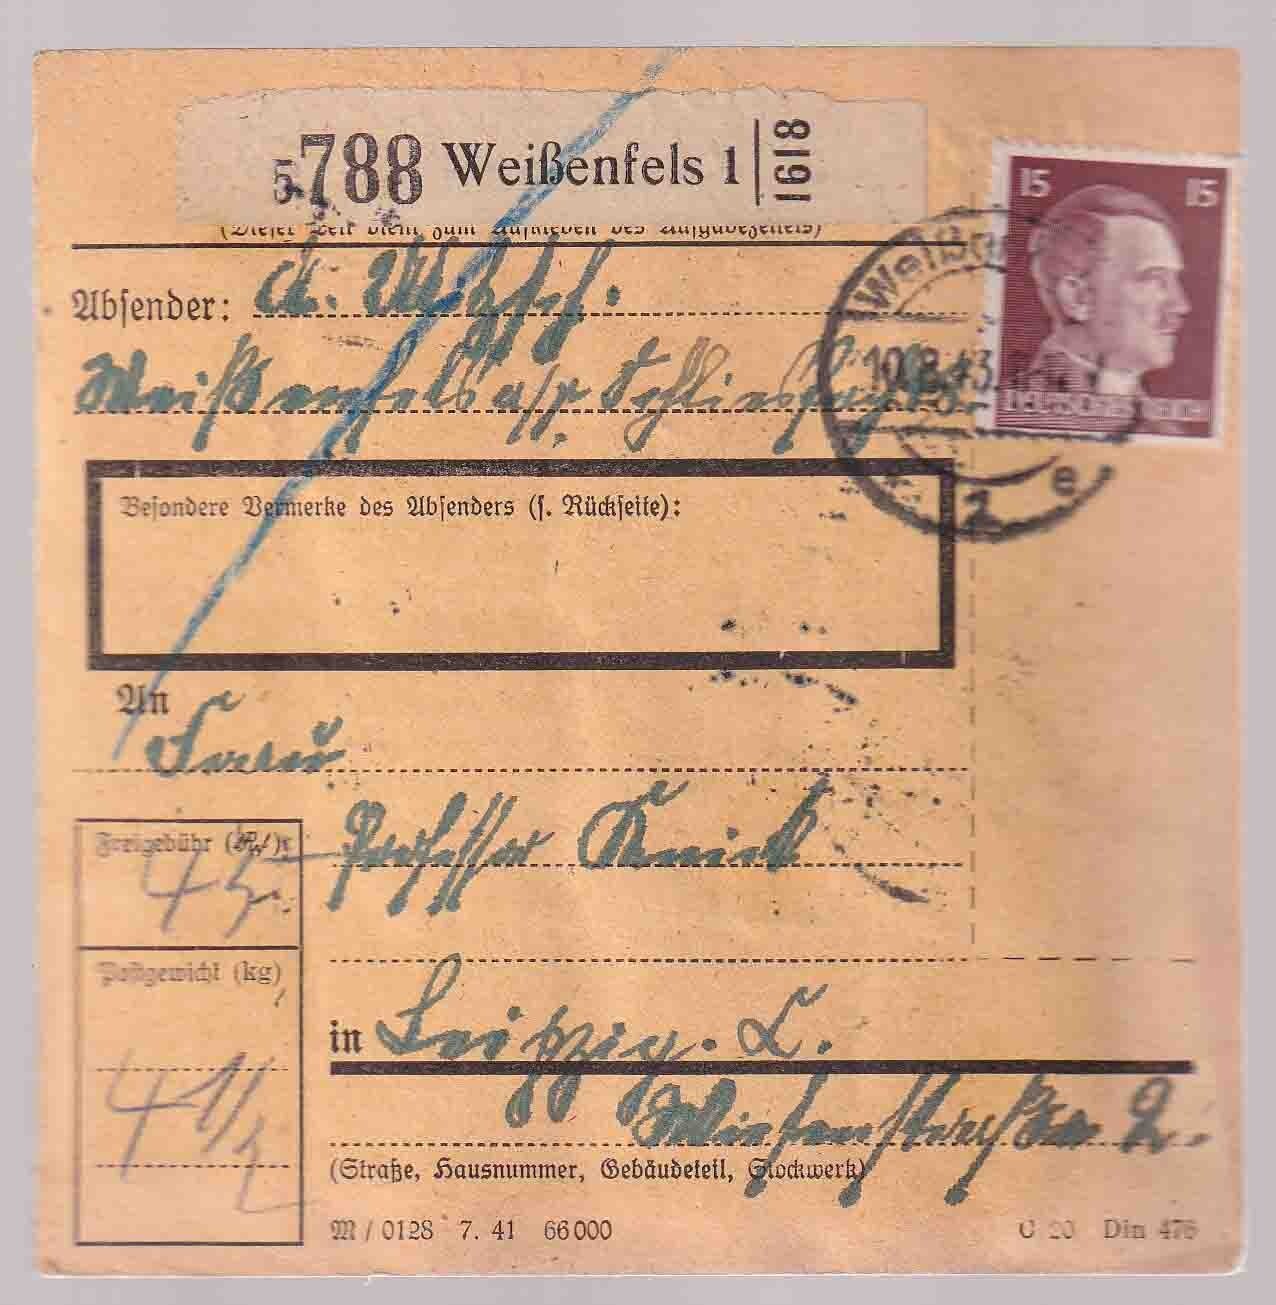 5 788 Weißenfels 1 1618
(Dieser Teil dient zum Aufkleben des Aufgabezettels)
15 15
DEUTSCHES REICH
Weißenfels
10.8.43
2 e
Absender: A.
Weißenfels a/S.
Besondere Vermerke des Absenders (s. Rückseite):
An
Frau
Professor Knick
Freigebühr
45
Postgewicht (kg)
4 1/2
in Leipzig. C.
Wiesenstraße 2.
(Straße, Hausnummer, Gebäudeteil, Stockwerk)
M / 0128 7. 41 66000
C 20 Din 476